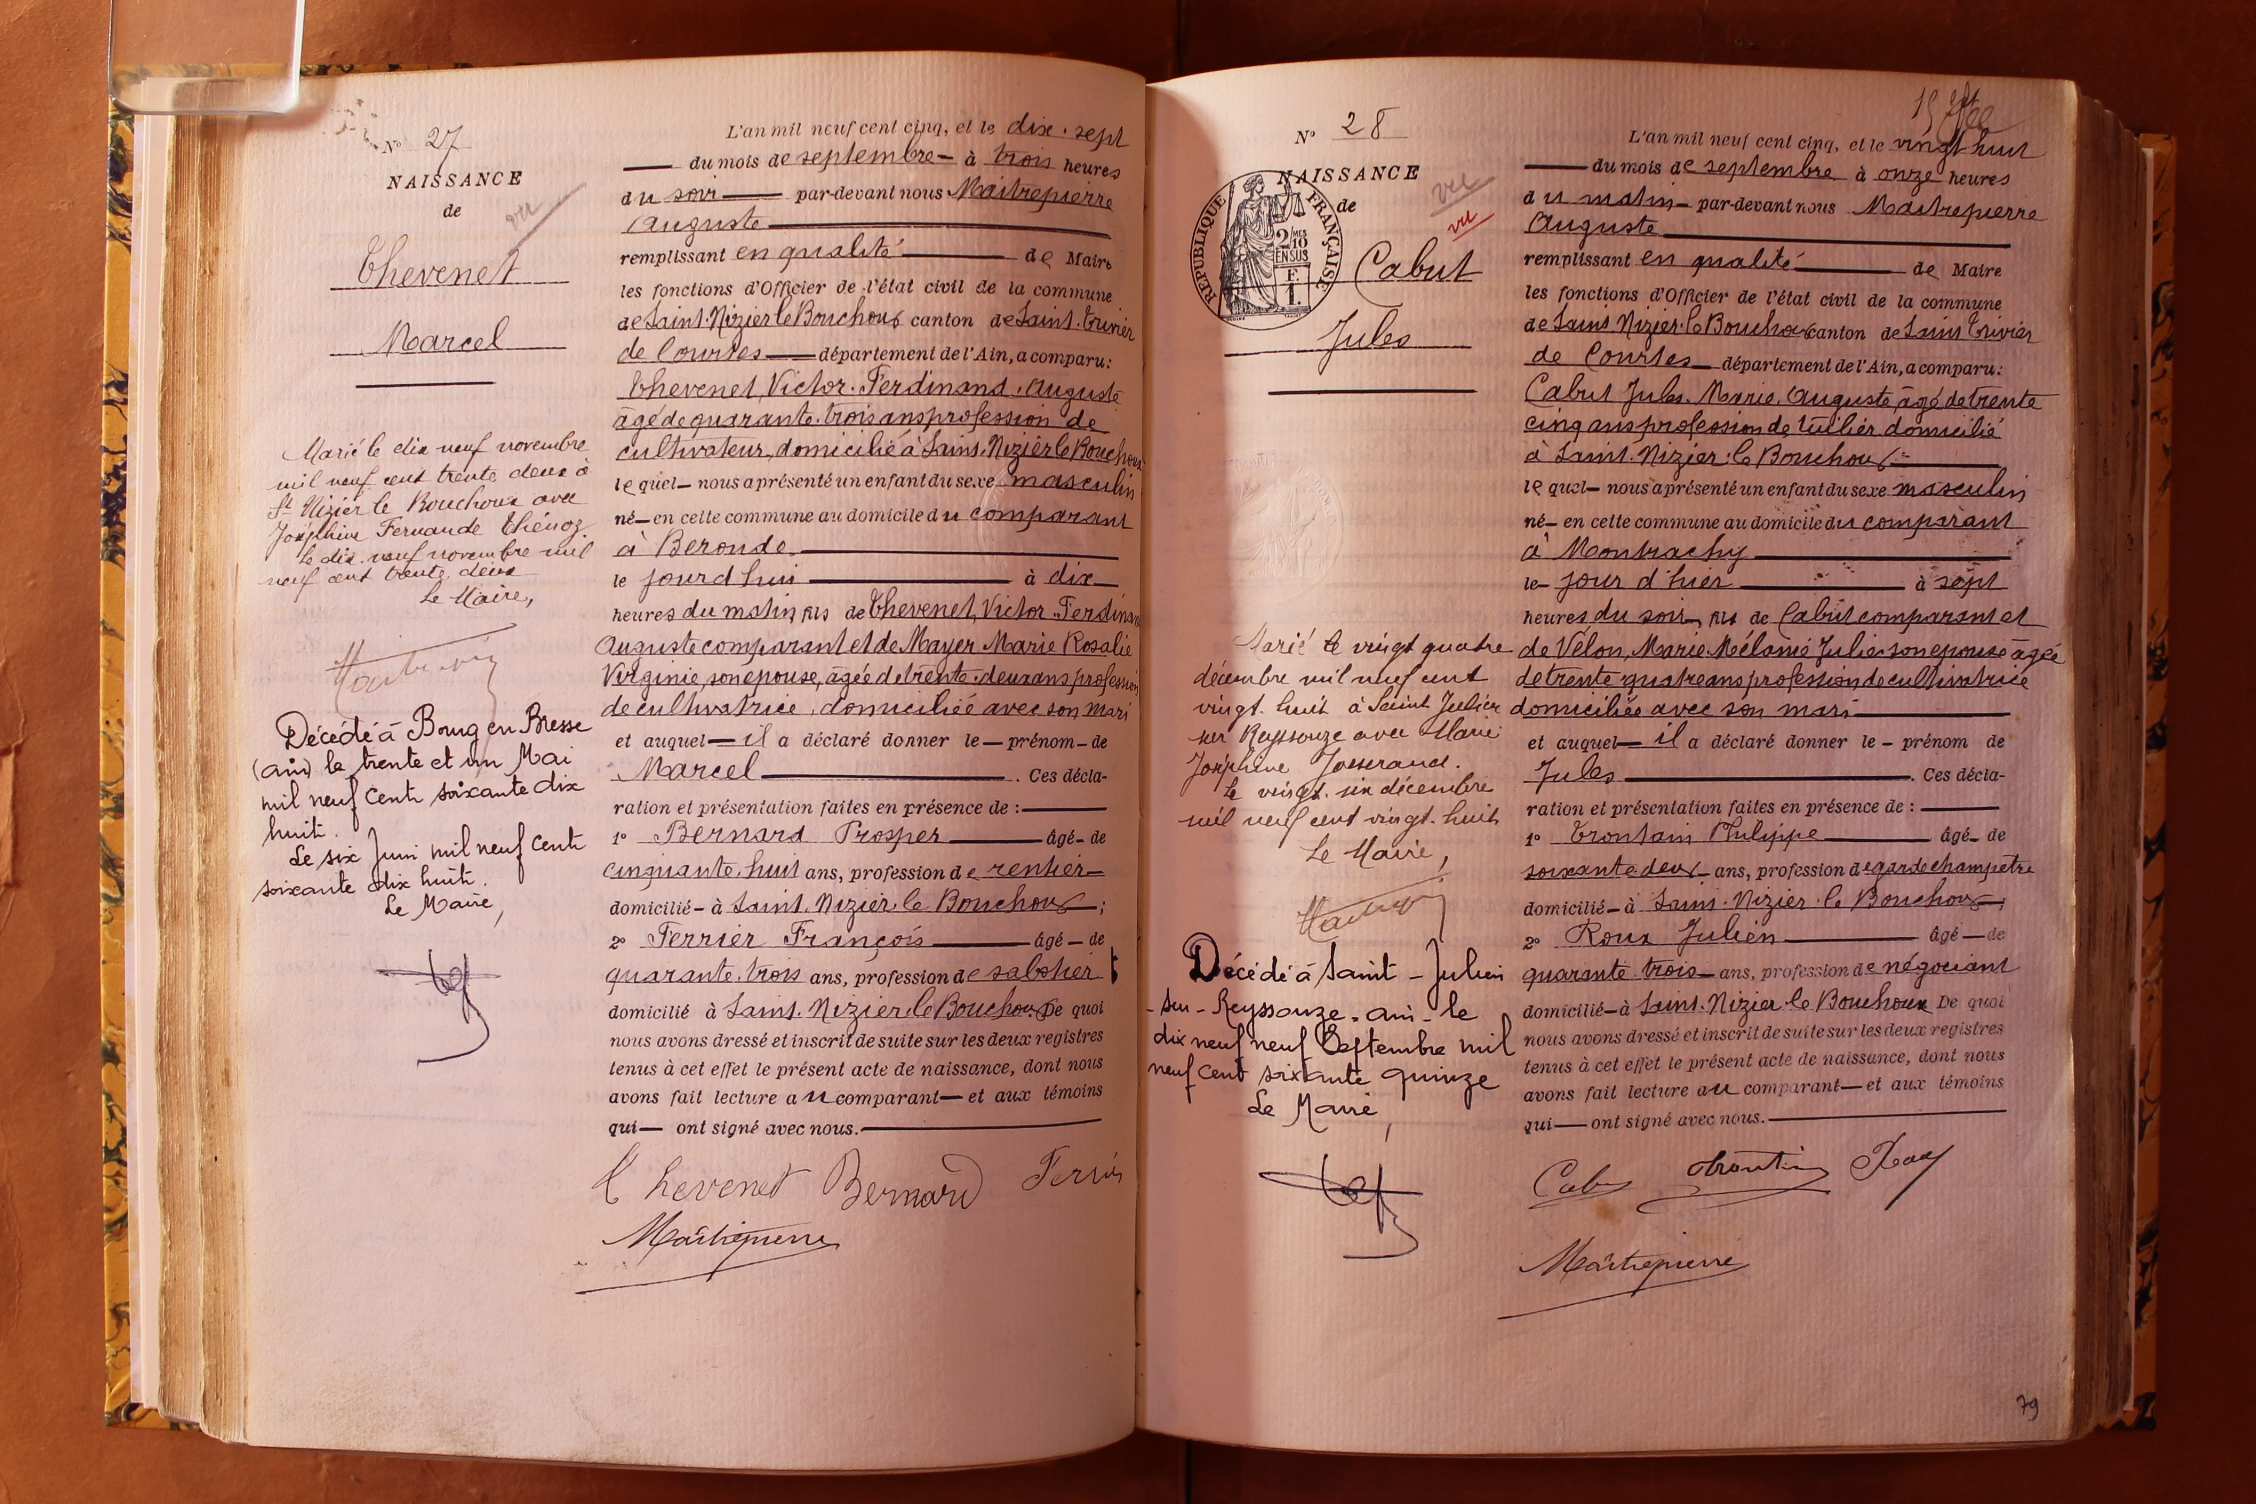 N° 27
NAISSANCE
de
vu
Thevenet
Marcel
Marié le dix neuf novembre
mil neuf cent trente deux à
St Nizier le Bouchoux avec
Joséphine Fernande Thénoz.
Le dix neuf novembre mil
neuf cent trente deux
Le Maire,
Décédé à Bourg en Bresse
(ain) le trente et un Mai
mil neuf cent soixante dix
huit.
Le six Juin mil neuf cent
soixante dix huit.
Le Maire,
L'an mil neuf cent cinq, et le dix-sept
du mois de septembre à trois heures
du soir par-devant nous Maitrepierre
Auguste
remplissant en qualité de Maire
les fonctions d'Officier de l'état civil de la commune
de Saint-Nizier le Bouchoux canton de Saint-Trivier
de Courtes département de l'Ain, a comparu:
Thevenet, Victor-Ferdinand, Auguste
âgé de quarante-trois ans profession de
cultivateur, domicilié à Saint-Nizier le Bouchoux
lequel nous a présenté un enfant du sexe masculin
né en cette commune au domicile du comparant
à Beronde
le jourd'hui à dix
heures du matin, fils de Thevenet, Victor Ferdinan
Auguste comparant et de Mayer Marie Rosalie
Virginie, son épouse, âgée de trente-deux ans profession
de cultivatrice, domiciliée avec son mari
et auquel il a déclaré donner le prénom de
Marcel. Ces décla-
ration et présentation faites en présence de :
1° Bernard Prosper âgé de
cinquante-huit ans, profession de rentier
domicilié à Saint-Nizier-le Bouchoux ;
2° Ferrier François âgé de
quarante-trois ans, profession de sabotier
domicilié à Saint-Nizier-le Bouchoux De quoi
nous avons dressé et inscrit de suite sur les deux registres
tenus à cet effet le présent acte de naissance, dont nous
avons fait lecture au comparant et aux témoins
qui ont signé avec nous.
Thevenet Bernard Ferrier
Maitrepierre
N° 28
NAISSANCE
de
vu
vu
RÉPUBLIQUE FRANÇAISE
2/MES
10
EN SUS
F.
1.
Cabut
Jules
Marié le vingt quatre
décembre mil neuf cent
vingt-huit à Saint Julien
sur Reyssouze avec Marie
Joséphine Josserand.
Le vingt-six décembre
mil neuf cent vingt-huit
Le Maire,
Décédé à Saint-Julien
-sur-Reyssouze-ain-le
dix neuf neuf Septembre mil
neuf cent soixante quinze
Le Maire,
L'an mil neuf cent cinq, et le vingt huit
du mois de septembre à onze heures
du matin par-devant nous Maitrepierre
Auguste
remplissant en qualité de Maire
les fonctions d'Officier de l'état civil de la commune
de Saint Nizier-le Bouchoux canton de Saint Trivier
de Courtes département de l'Ain, a comparu:
Cabut Jules-Marie, Auguste, âgé de trente
cinq ans profession de tuilier domicilié
à Saint-Nizier-le Bouchoux
lequel nous a présenté un enfant du sexe masculin
né en cette commune au domicile du comparant
à Montrachy
le jour d'hier à sept
heures du soir, fils de Cabut comparant et
de Vélon, Marie Mélanie Julie son épouse âgée
de trente-quatre ans profession de cultivatrice
domiciliée avec son mari
et auquel il a déclaré donner le prénom de
Jules. Ces décla-
ration et présentation faites en présence de :
1° Trontain Philippe âgé de
soixante deux ans, profession de garde champêtre
domicilié à Saint-Nizier-le Bouchoux ;
2° Roux Julien âgé de
quarante-trois ans, profession de négociant
domicilié à Saint-Nizier le Bouchoux De quoi
nous avons dressé et inscrit de suite sur les deux registres
tenus à cet effet le présent acte de naissance, dont nous
avons fait lecture au comparant et aux témoins
qui ont signé avec nous.
Cabut Trontain Roux
Maitrepierre
79